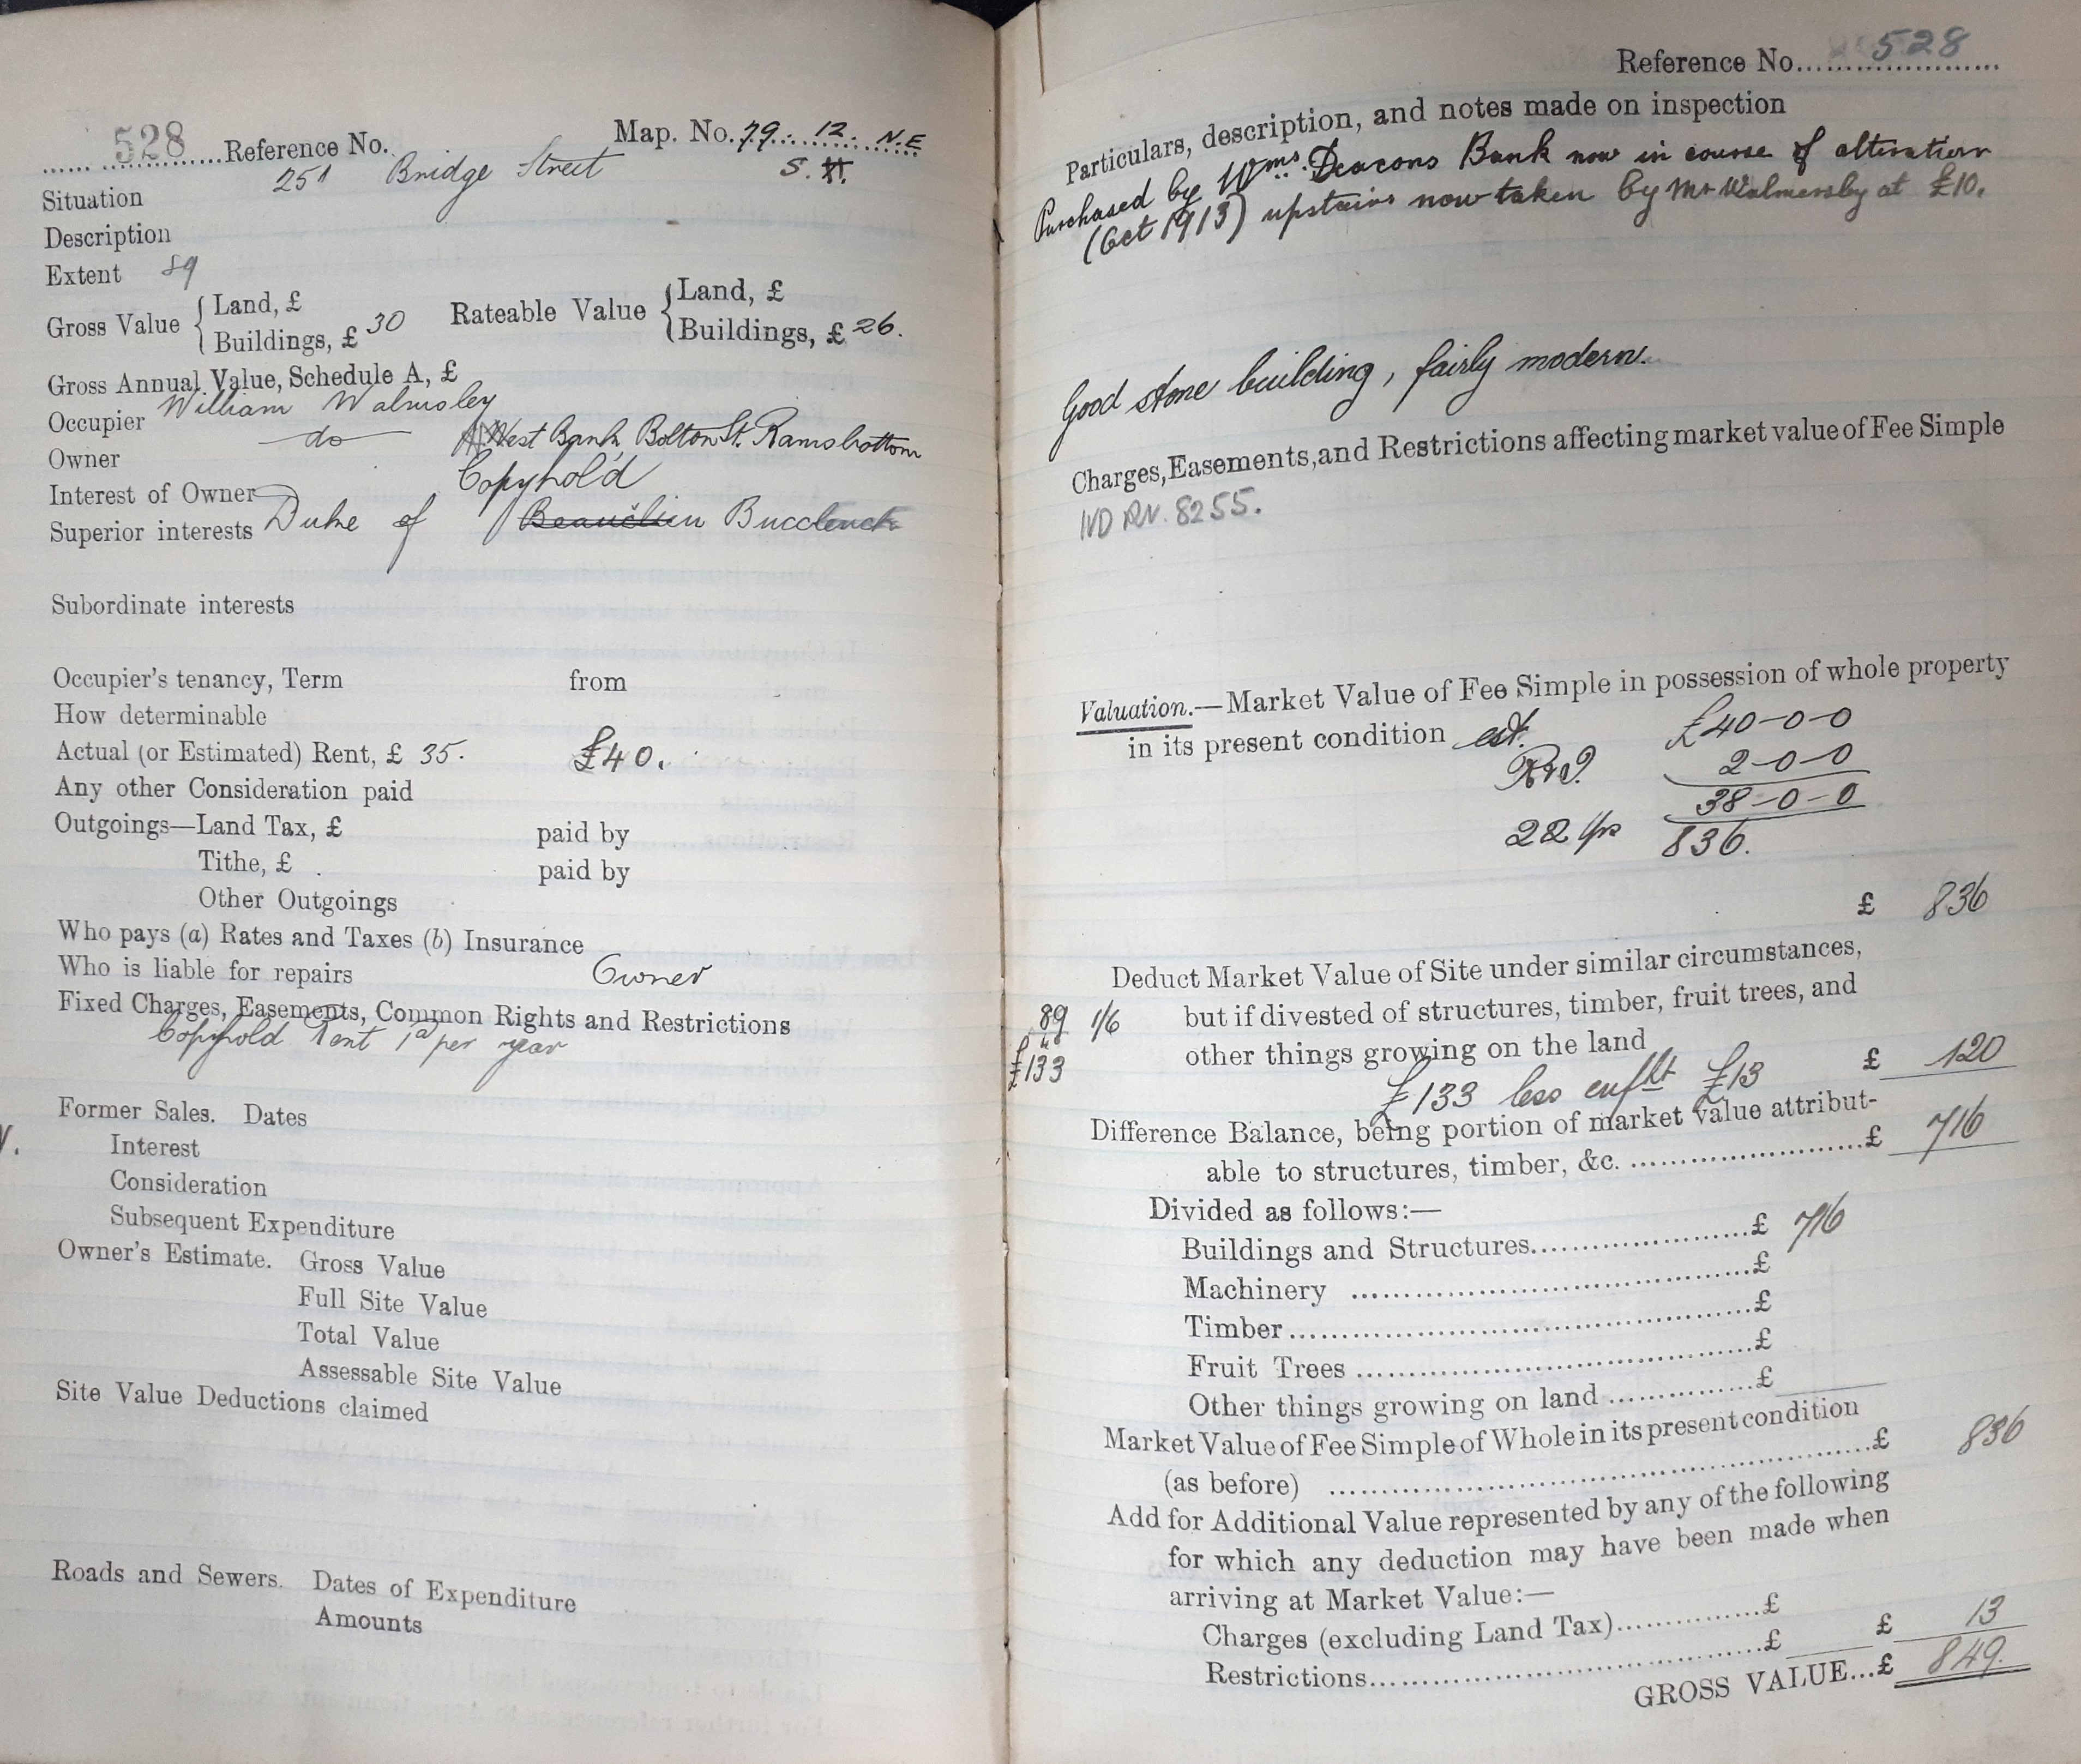 528 Reference No. Map. No. 79. 12. N.E
S.
Situation 251 Bridge Street
Description
Extent 89
Gross Value { Land, £
Buildings, £ 30
Rateable Value { Land, £
Buildings, £ 26.
Gross Annual Value, Schedule A, £
Occupier William Walmsley
Owner do West Bank, Bolton St. Ramsbottom
Interest of Owner Copyhold
Superior interests Duke of Buccleuch
Subordinate interests
Occupier's tenancy, Term from
How determinable
Actual (or Estimated) Rent, £ 35. £40.
Any other Consideration paid
Outgoings—Land Tax, £ paid by
Tithe, £ paid by
Other Outgoings
Who pays (a) Rates and Taxes (b) Insurance
Who is liable for repairs Owner
Fixed Charges, Easements, Common Rights and Restrictions
Copyhold Rent 1d per year
Former Sales. Dates
Interest
Consideration
Subsequent Expenditure
Owner's Estimate. Gross Value
Full Site Value
Total Value
Assessable Site Value
Site Value Deductions claimed
Roads and Sewers. Dates of Expenditure
Amounts
Reference No. 528
Particulars, description, and notes made on inspection
Purchased by Wms. Deacons Bank now in course of alteration
(Oct 1913) upstairs now taken by Mr Walmersby at £10.
Good stone building, fairly modern.
Charges, Easements, and Restrictions affecting market value of Fee Simple
IVD RN. 8255.
Valuation.—Market Value of Fee Simple in possession of whole property
in its present condition est. £40-0-0
2-0-0
38-0-0
22 yrs 836.
£ 836
Deduct Market Value of Site under similar circumstances,
but if divested of structures, timber, fruit trees, and
other things growing on the land £ 120
89 1/6
£133
£133 less enfht £13
Difference Balance, being portion of market value attribut-
able to structures, timber, &c. £ 716
Divided as follows:—
Buildings and Structures £ 716
Machinery £
Timber £
Fruit Trees £
Other things growing on land £
Market Value of Fee Simple of Whole in its present condition
(as before) £ 836
Add for Additional Value represented by any of the following
for which any deduction may have been made when
arriving at Market Value:—
Charges (excluding Land Tax) £
Restrictions £ £ 13
GROSS VALUE...£ 849.